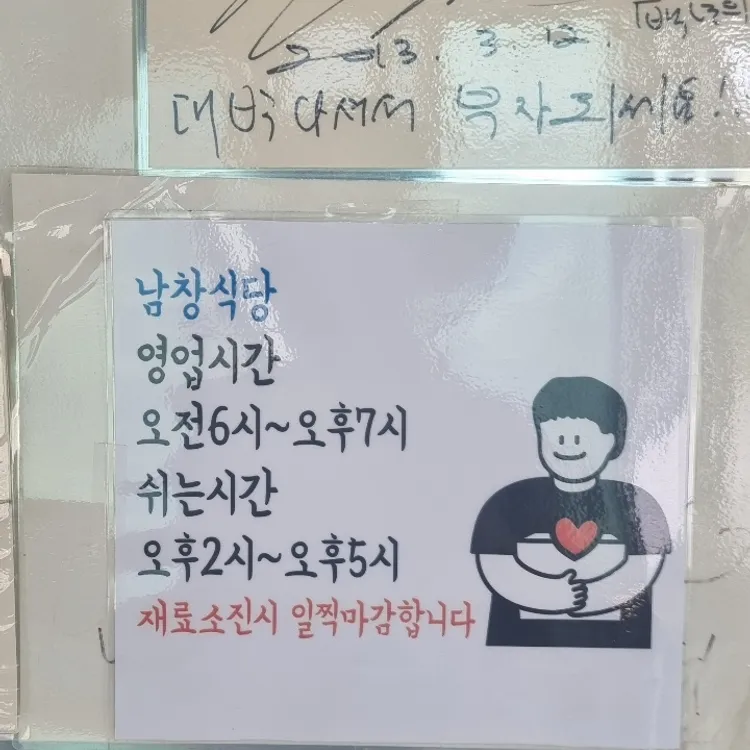 2013. 3. 12.
대박나셔서 부자되세요!
남창식당
영업시간
오전6시~오후7시
쉬는시간
오후2시~오후5시
재료소진시 일찍마감합니다